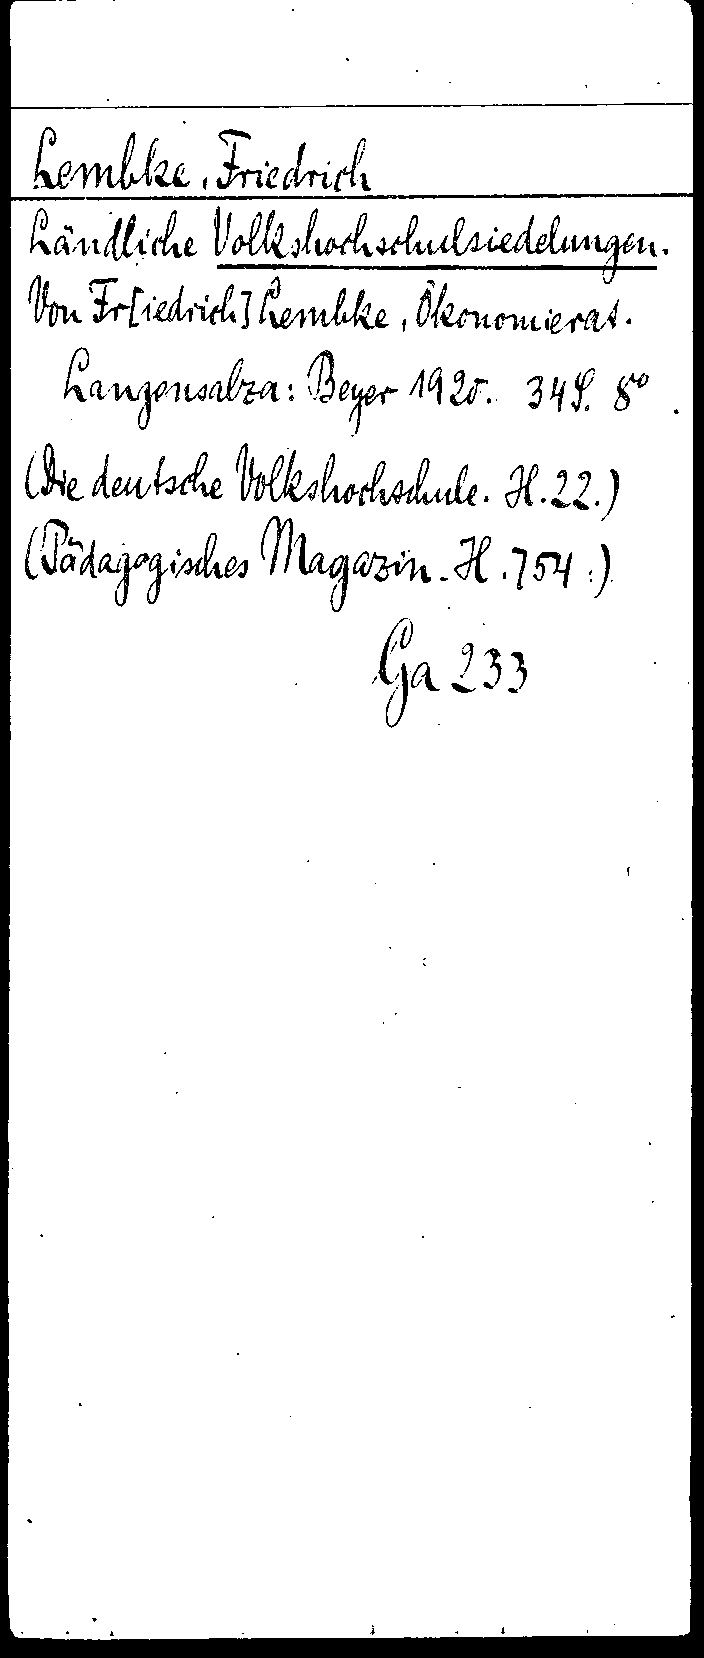 Lembke, Friedrich
Ländliche Volkshochschulsiedelungen.
Von Fr[iedrich] Lembke, Ökonomierat.
Langensalza: Beyer 1920. 34 S. 8°
(Die deutsche Volkshochschule. H. 22.)
(Pädagogisches Magazin. H. 754.)
Ga 233